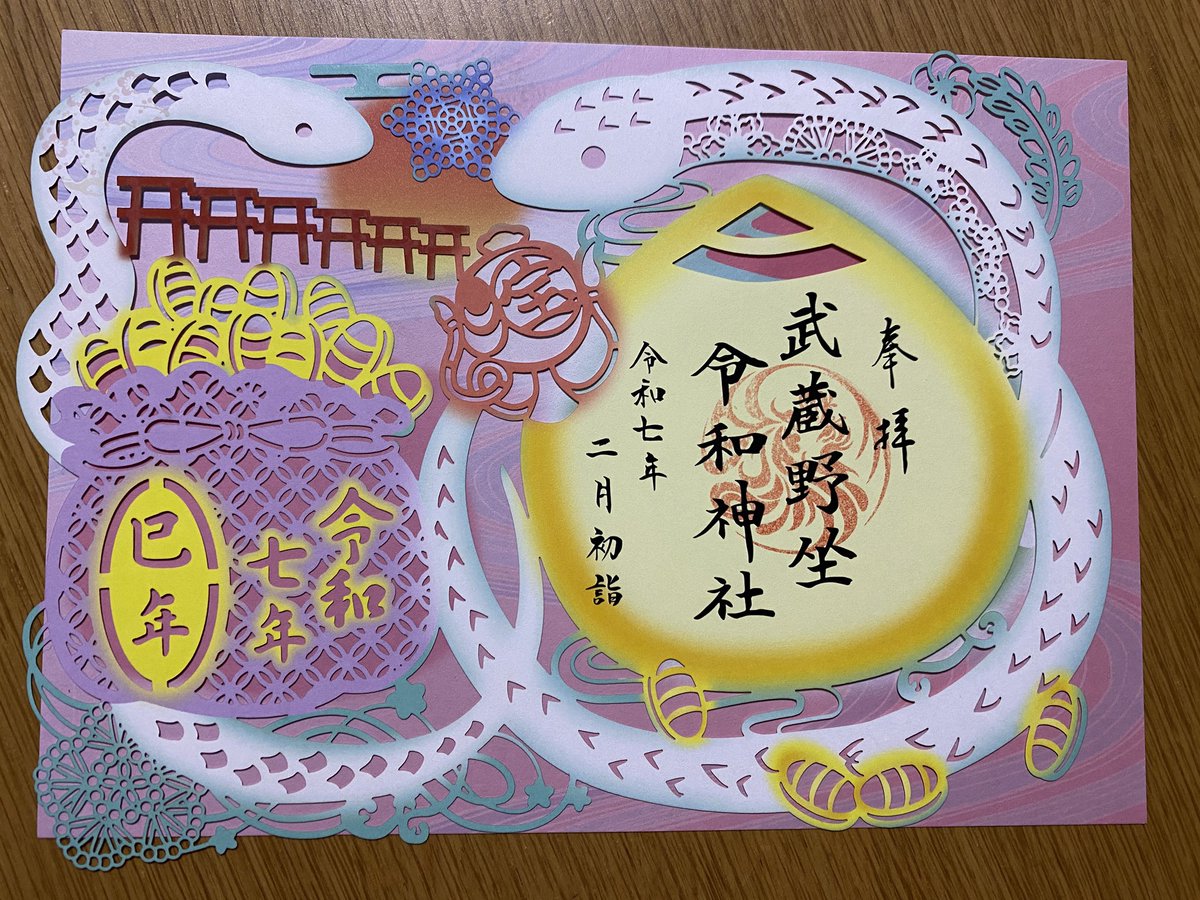 奉拝
武蔵野坐
令和神社
令和七年
二月初詣
令和
七年
巳年